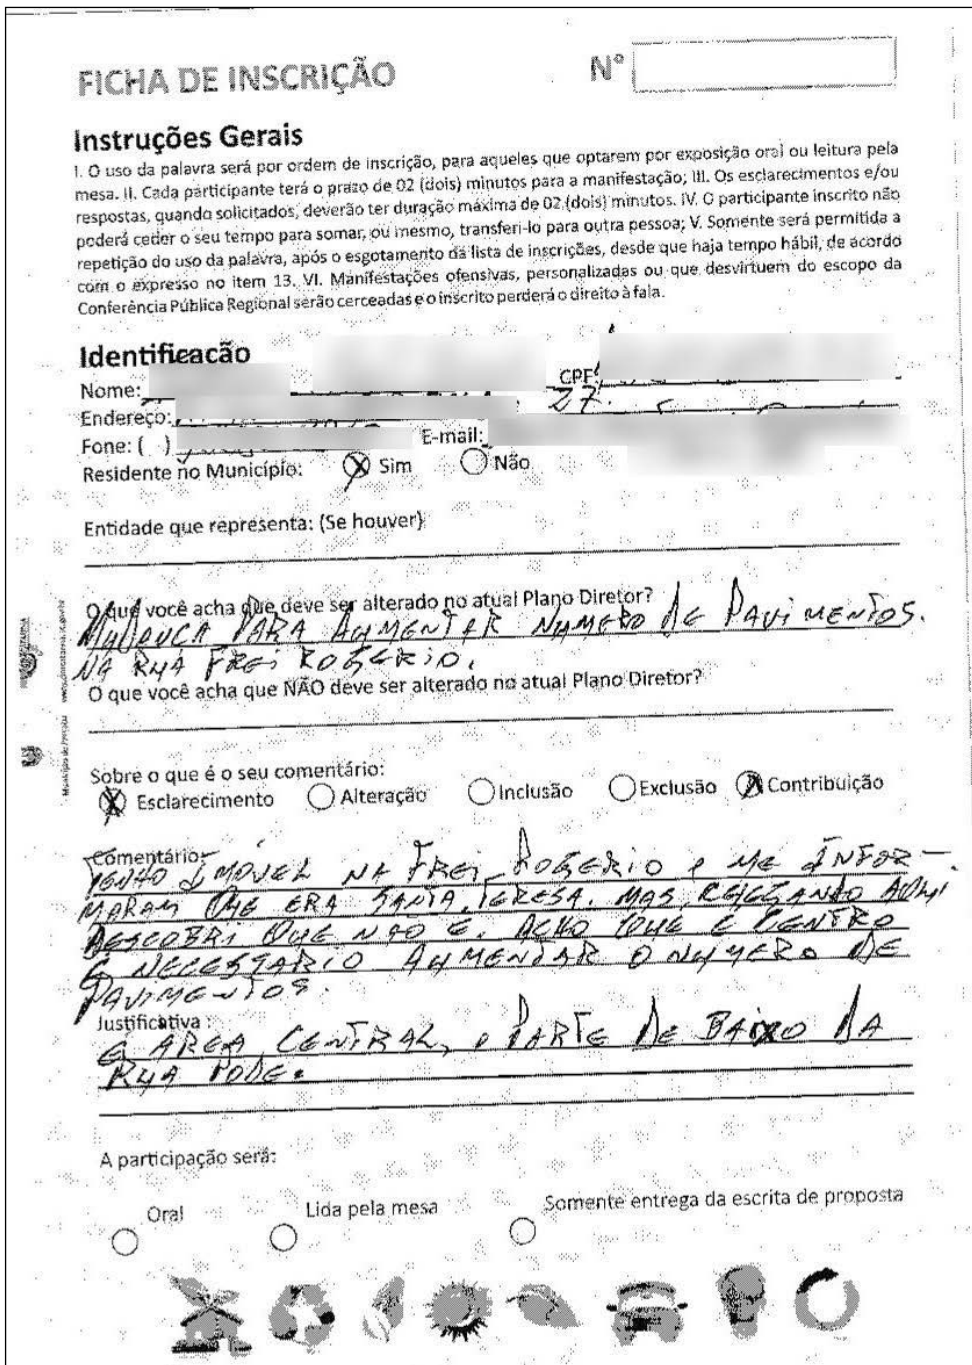 FICHA DE INSCRIÇÃO
N°
Instruções Gerais
I. O uso da palavra será por ordem de inscrição, para aqueles que optarem por exposição oral ou leitura pela
mesa. II. Cada participante terá o prazo de 02 (dois) minutos para a manifestação; III. Os esclarecimentos e/ou
respostas, quando solicitados, deverão ter duração máxima de 02 (dois) minutos. IV. O participante inscrito não
poderá ceder o seu tempo para somar, ou mesmo, transferi-lo para outra pessoa; V. Somente será permitida a
repetição do uso da palavra, após o esgotamento da lista de inscrições, desde que haja tempo hábil, de acordo
com o expresso no item 13. VI. Manifestações ofensivas, personalizadas ou que desvirtuem do escopo da
Conferência Pública Regional serão cerceadas e o inscrito perderá o direito à fala.
Identificacão
Nome: CPF:
Endereço: 27
Fone: ( ) E-mail:
Residente no Município: X Sim Não
Entidade que representa: (Se houver)
O que você acha que deve ser alterado no atual Plano Diretor?
PARA AUMENTAR NUMERO DE PAVIMENTOS.
NA RUA FREI ROGERIO.
O que você acha que NÃO deve ser alterado no atual Plano Diretor?
Sobre o que é o seu comentário:
X Esclarecimento Alteração Inclusão Exclusão X Contribuição
Comentário:
TENHO IMOVEL NA FREI ROGERIO e ME INFOR-
MARAM QUE ERA SANTA TERESA. MAS, CHEGANDO AQUI
DESCOBRI QUE NÃO E. ACHO QUE E CENTRO
E NECESSARIO AUMENTAR O NUMERO DE
PAVIMENTOS.
Justificativa:
E AREA CENTRAL, e PARTE DE BAIXO DA
RUA PODE.
A participação será:
Oral Lida pela mesa Somente entrega da escrita de proposta